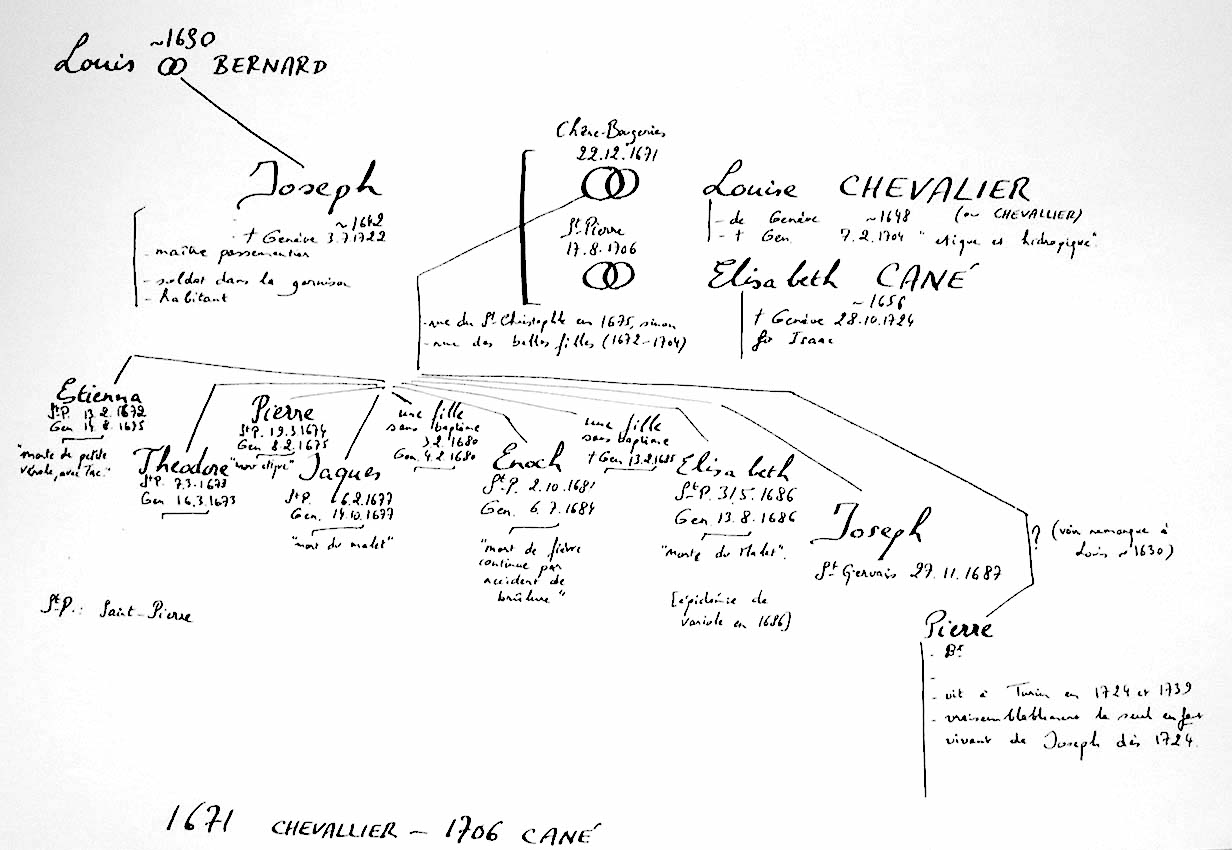 ~1630
Louis BERNARD
Joseph
~1642
† Genève 3.7.1722
- maître passementier
- soldat dans la garnison
- habitant
Chêne-Bougeries
22.12.1671
St Pierre
17.8.1706
Louise CHEVALIER
- de Genève ~1648 (ou CHEVALLIER)
- † Gen. 7.2.1704 "étique et hidropique".
Elisabeth CANÉ
~1656
† Genève 28.10.1724
fe Isaac
- rue du St Christophle en 1675, sinon
- rue des belles filles (1672-1704)
Estienna
St P. 13.2.1672
Gen 14.8.1675
"morte de petite
vérole, avec Tac."
Theodore
St P. 7.3.1673
Gen 16.3.1673
Pierre
St P. 19.3.1674
Gen 8.2.1675
"mort étique"
Jaques
St P. 6.2.1677
Gen. 14.10.1677
"mort du malet"
une fille
sans baptême
3.2.1680
Gen. 4.2.1680
Enoch
St P. 2.10.1681
Gen. 6.7.1684
"mort de fièvre
continue par
accident de
brûlure"
une fille
sans baptême
† Gen 13.2.1685
Elisabeth
St P. 31.5.1686
Gen 13.8.1686
"morte du Malet".
[épidémie de
variole en 1686]
Joseph
St Gervais 27.11.1687
? (voir remarque à
Louis n°1630)
Pierre
- Br
-
- vit à Turin en 1724 et 1739
- vraisemblablement le seul enfant
vivant de Joseph dès 1724.
St P.: Saint-Pierre
1671 CHEVALLIER - 1706 CANÉ